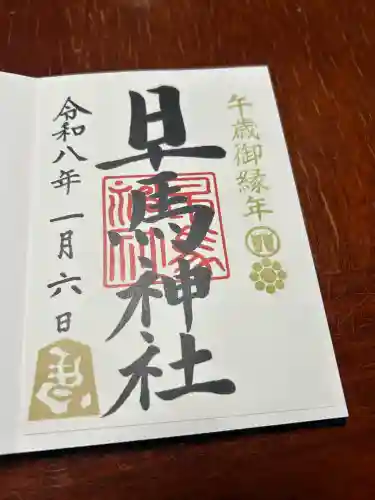 午歳御縁年
早馬神社
令和八年一月六日